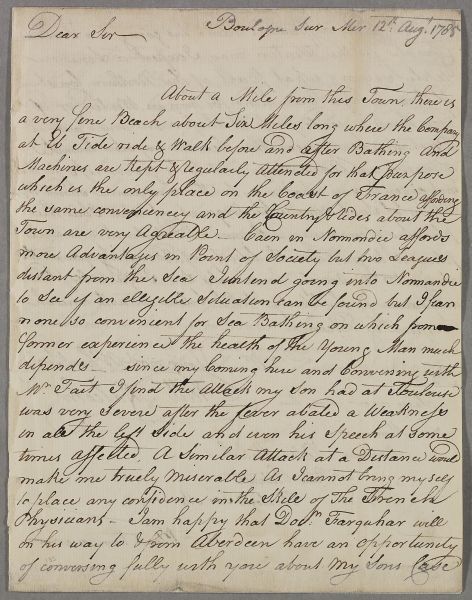 Dear Sir
Boulogne Sur Mer 12th Augt 1788
About a Mile from this Town, there is
a very fine Beach about Six Miles long where the Company
at Eb Tide ride & Walk before and after Bathing and
Machines are kept & regularly Attended for that purpose
which is the only place on the Coast of France affording
the same conveniencey and the Country & rides about the
Town are very Agreable – Caen in Normandie affords
more Advantages in Point of Society but two Leagues
distant from the Sea I intend going into Normandie
to See if an ellegible Situation can be found but I fear
none so convenient for Sea Bathing on which from
former experience the health of the Young Man much
dipendes – since my Coming here and Conversing with
Mr Tait I find the Attack my Son had at Toulouse
was very Severe after the fever abated a Weakness
in all the left Side and even his Speech at Some
times affected A Similar Attack at a Distance would
make me truely Miserable As I cannot bring myself
to place any Confidence in the Skile of The French
Physicians – I am happy that Docr Farquhar will
on his way to & from Aberdeen have an opportunity
of conversing fully with you about My Sons Case